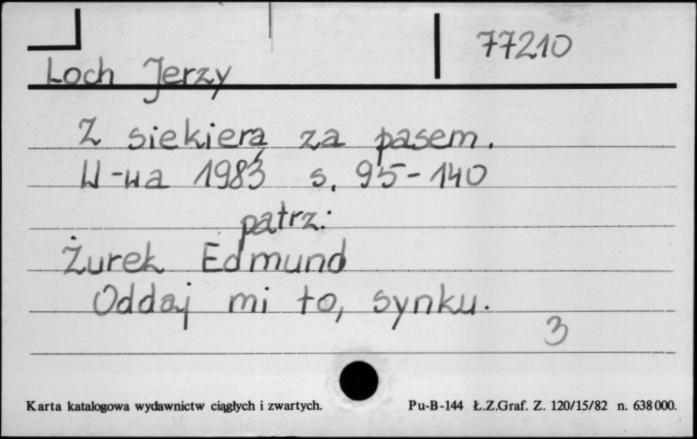 77210
Loch Jerzy
Z siekierą za pasem.
W-wa 1983 s. 95-140
patrz:
Żurek Edmund
Oddaj mi to, synku.
3
Karta katalogowa wydawnictw ciągłych i zwartych.
Pu-B-144 Ł.Z.Graf. Z. 120/15/82 n. 638000.